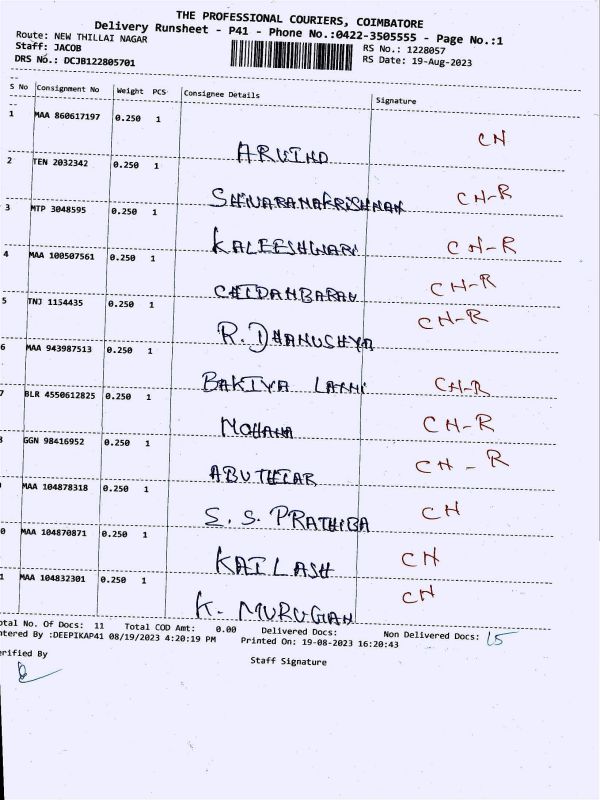 THE PROFESSIONAL COURIERS, COIMBATORE
Delivery Runsheet - P41 - Phone No.:0422-3505555 - Page No.:1
Route: NEW THILLAI NAGAR RS No.: 1228057
Staff: JACOB RS Date: 19-Aug-2023
DRS No.: DCJB122805701
S No Consignment No Weight PCS Consignee Details Signature
1 MAA 860617197 0.250 1 ARVIND CN
2 TEN 2032342 0.250 1 SHIVARAMAKRISHNAN CH-R
3 MTP 3048595 0.250 1 KALEESHWARI CH-R
4 MAA 100507561 0.250 1 CHIDAMBARAM CH-R
5 TNJ 1154435 0.250 1 R. DHANUSHYA CH-R
6 MAA 943987513 0.250 1 BAKIYA LAXMI CH-R
7 BLR 4550612825 0.250 1 MOHANA CH-R
GGN 98416952 0.250 1 CH-R
MAA 104878318 0.250 1 S. S. PRATHIBA CH
0 MAA 104870871 0.250 1 KAILASH CH
1 MAA 104832301 0.250 1 K. MURUGAN CH
otal No. Of Docs: 11 Total COD Amt: 0.00 Delivered Docs: Non Delivered Docs: 15
ntered By :DEEPIKAP41 08/19/2023 4:20:19 PM Printed On: 19-08-2023 16:20:43
erified By Staff Signature